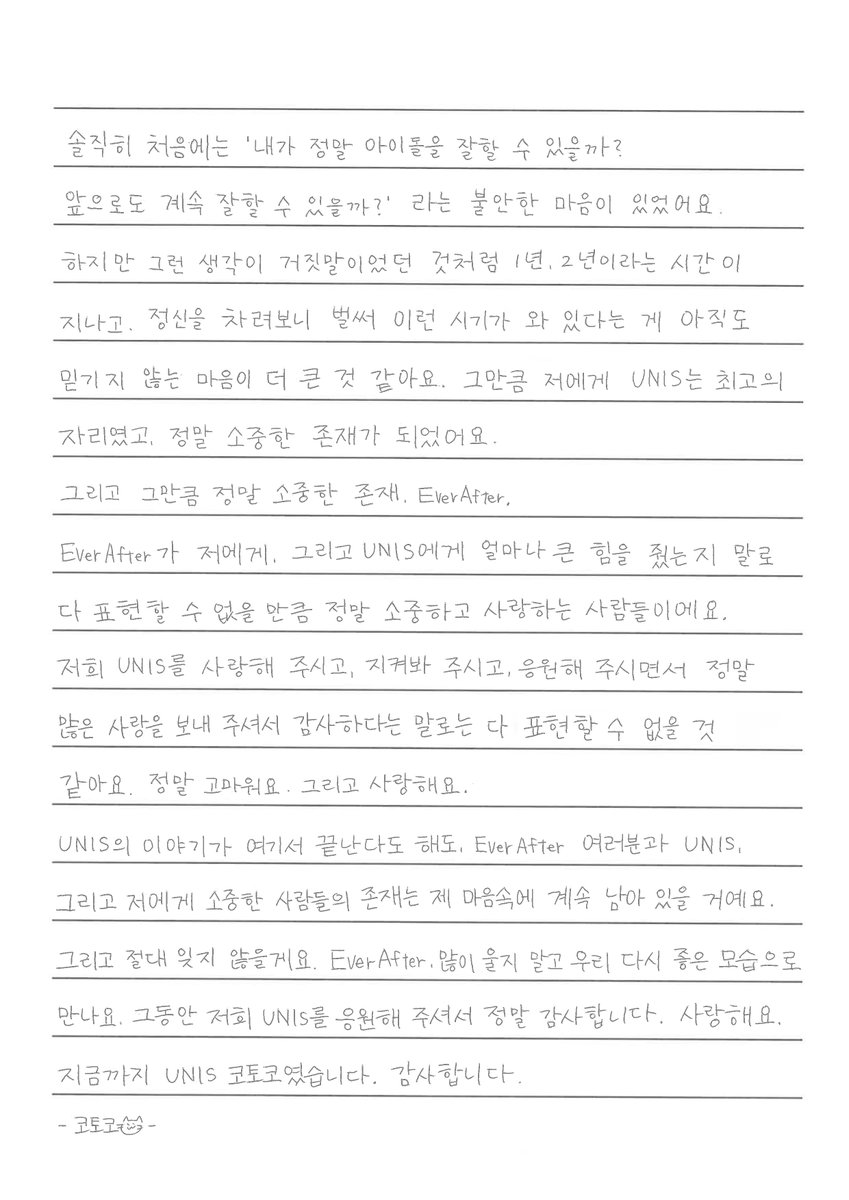 솔직히 처음에는 '내가 정말 아이돌을 잘할 수 있을까?
앞으로도 계속 잘할 수 있을까?' 라는 불안한 마음이 있었어요.
하지만 그런 생각이 거짓말이었던 것처럼 1년, 2년이라는 시간이
지나고, 정신을 차려보니 벌써 이런 시기가 와 있다는 게 아직도
믿기지 않는 마음이 더 큰 것 같아요. 그만큼 저에게 UNIS는 최고의
자리였고, 정말 소중한 존재가 되었어요.
그리고 그만큼 정말 소중한 존재, EverAfter,
EverAfter가 저에게, 그리고 UNIS에게 얼마나 큰 힘을 줬는지 말로
다 표현할 수 없을 만큼 정말 소중하고 사랑하는 사람들이에요.
저희 UNIS를 사랑해 주시고, 지켜봐 주시고, 응원해 주시면서 정말
많은 사랑을 보내 주셔서 감사하다는 말로는 다 표현할 수 없을 것
같아요. 정말 고마워요. 그리고 사랑해요.
UNIS의 이야기가 여기서 끝난다도 해도, EverAfter 여러분과 UNIS,
그리고 저에게 소중한 사람들의 존재는 제 마음속에 계속 남아 있을 거예요.
그리고 절대 잊지 않을게요. EverAfter, 많이 울지 말고 우리 다시 좋은 모습으로
만나요. 그동안 저희 UNIS를 응원해 주셔서 정말 감사합니다. 사랑해요.
지금까지 UNIS 코토코였습니다. 감사합니다.
- 코토코 -